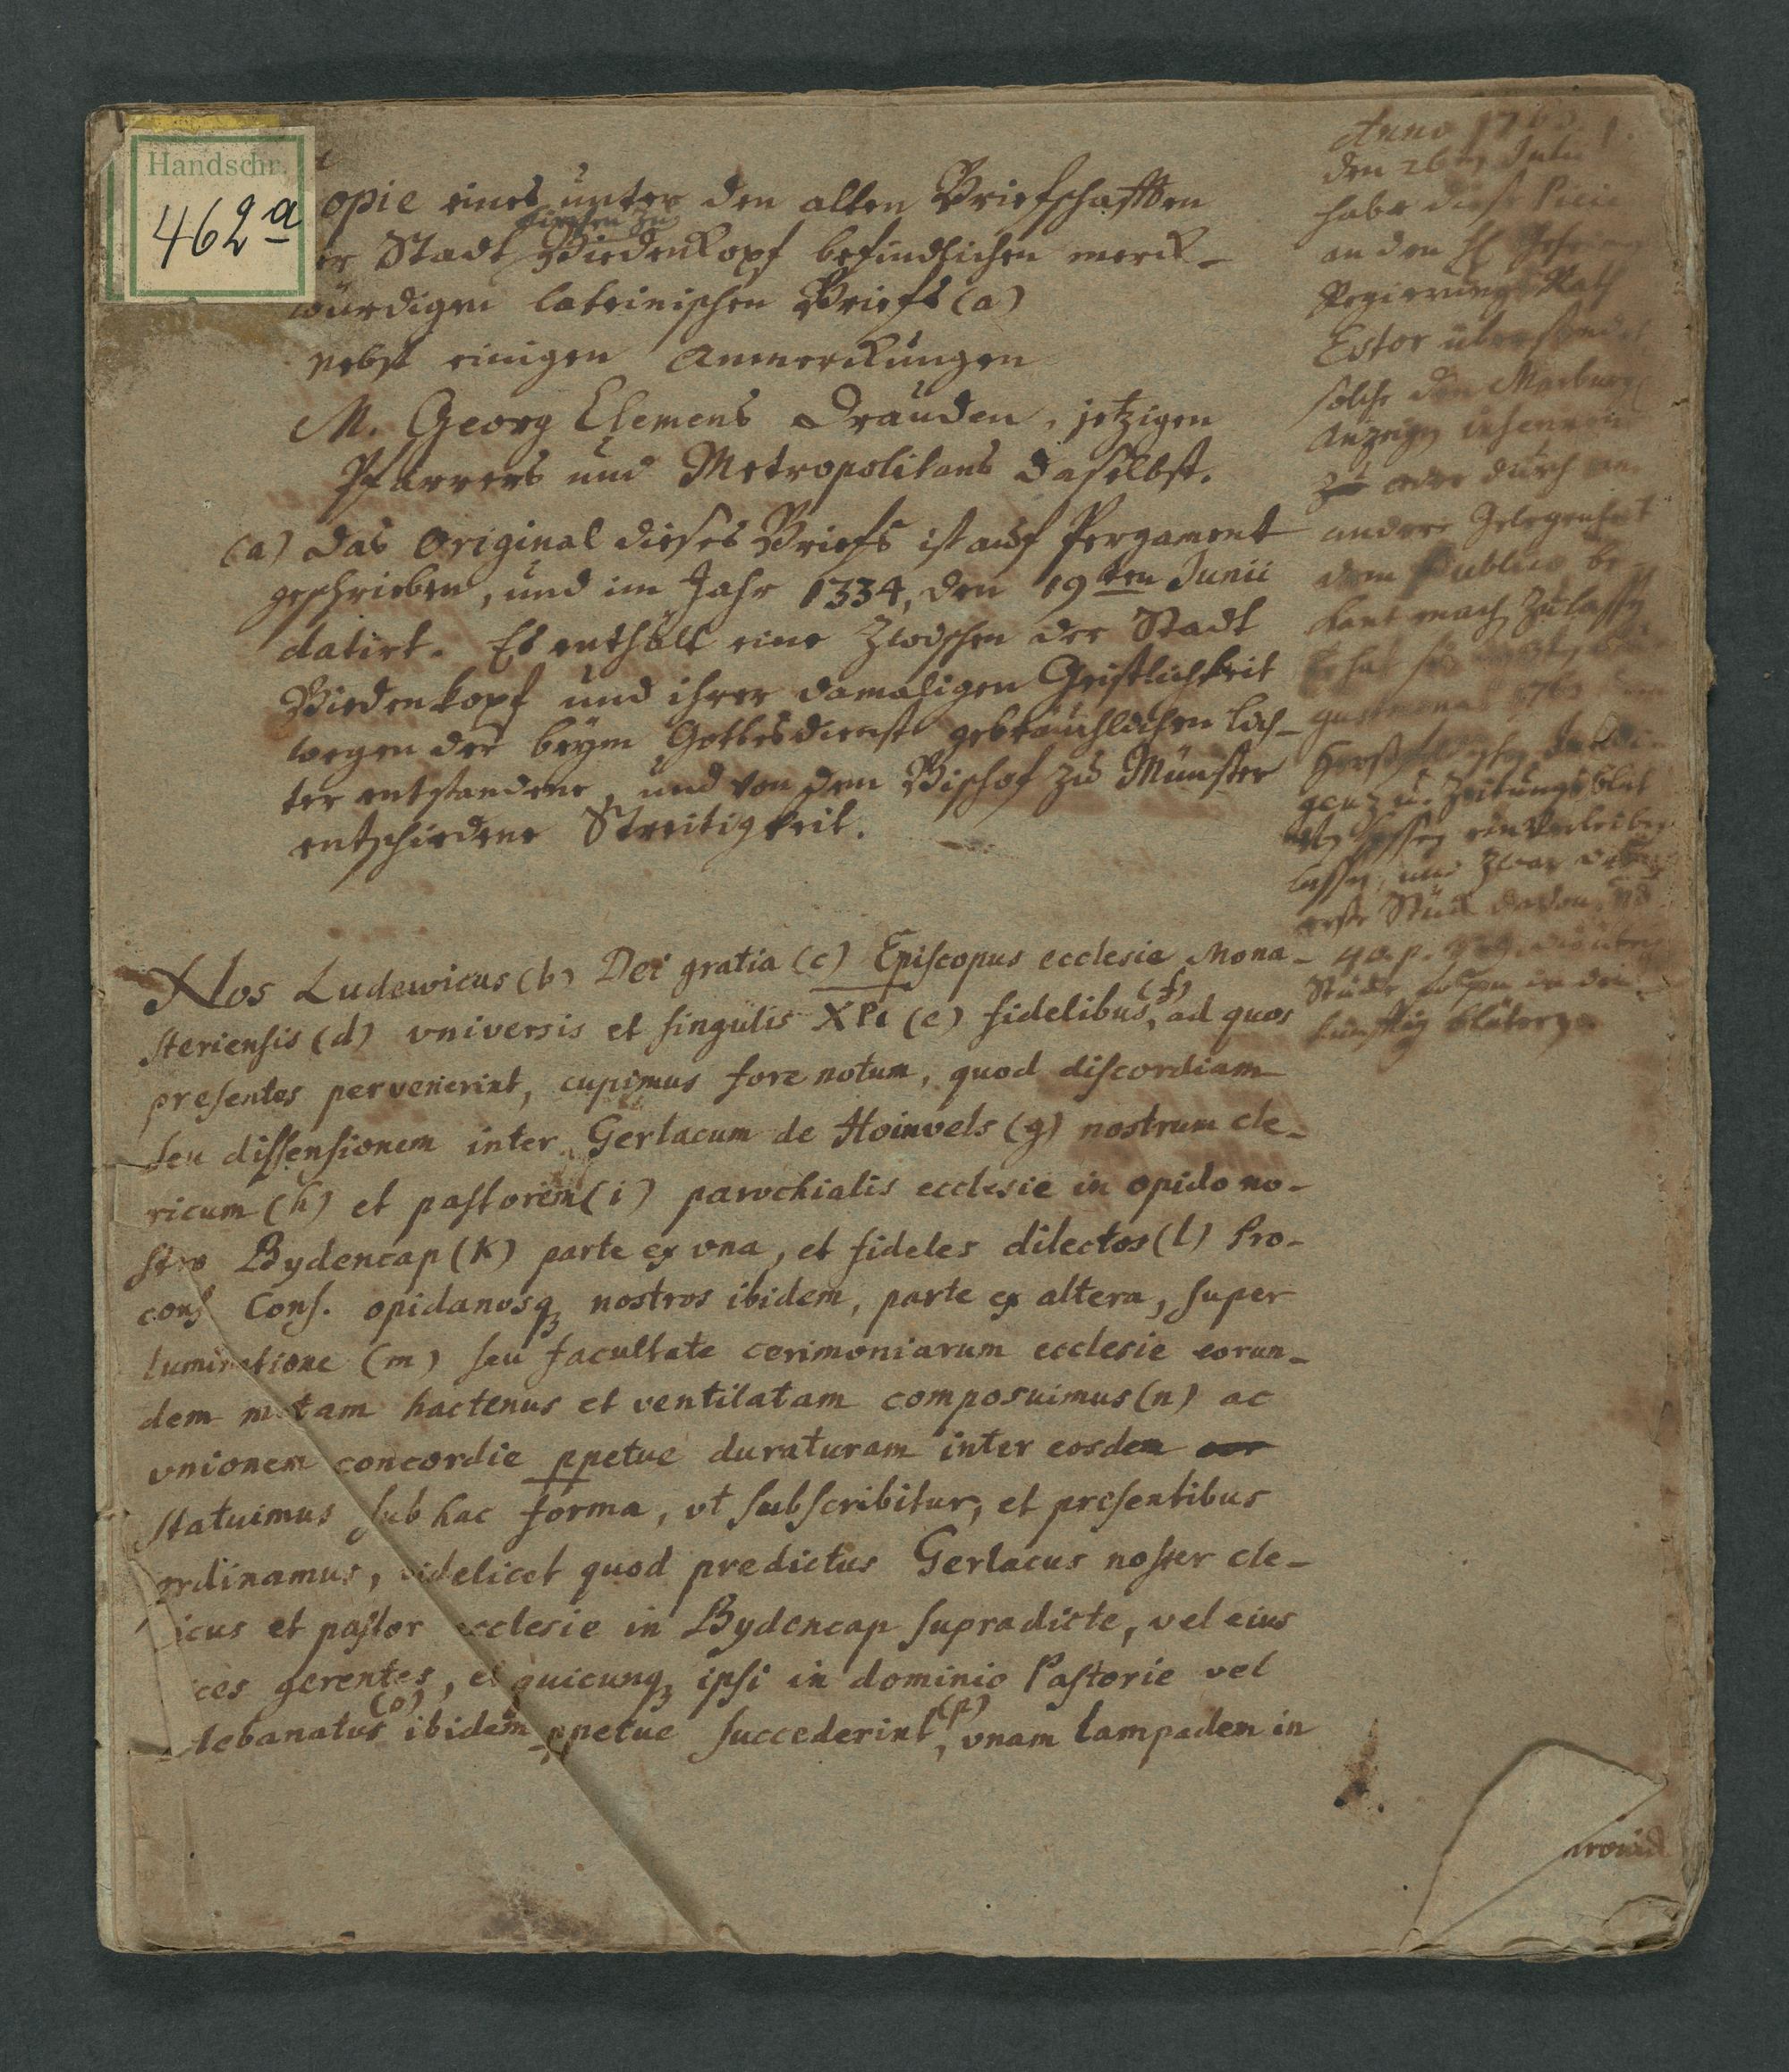 Handschr.
462a
opie eines unter den alten Briefschafften
er Stadt Biedenkopf befindlichen merck-
würdigen lateinischen Briefs (a)
nebst einigen Anmerckungen
M. Georg Clemens Drauden, jetzigen
Pfarrers und Metropolitans daselbst.
(a) Das Original dieses Briefs ist auf Pergament
geschrieben, und im Jahr 1334, den 19ten Junii
datirt. Es enthält eine zwischen der Stadt
Biedenkopf und ihrer damahligen Geistlichkeit
wegen der beym Gottesdienst gebräuchlichen Lich-
ter entstandene, und von dem Bischof zu Münster
entschiedene Streitigkeit.
Nos Ludewicus (b) Dei gratia (c) Episcopus ecclesie Mona-
steriensis (d) vniversis et singulis XPi (e) fidelibus, (f) ad quos
presentes pervenerint, cupimus fore notum, quod discordiam
seu dissensionem inter Gerlacum de Hoinvels (g) nostrum cle-
ricum (h) et pastorem (i) parochialis ecclesie in opido no-
stro Bydencap (K) parte ex vna, et fideles dilectos (l) Pro-
cons Cons. opidanosq nostros ibidem, parte ex altera, super
luminatione (m) seu facultate cerimoniarum ecclesie eorun-
dem motam hactenus et ventilatam composuimus (n) ac
vnionem concordie ppetue duraturam inter eosdem
statuimus sub hac forma, vt subscribitur, et presentibus
ordinamus, videlicet quod predictus Gerlacus noster cle-
icus et pastor ecclesie in Bydencap supradicte, vel eius
ices gerentes, et quicunq ipsi in dominio Pastorie vel
lebanatus (o) ibidem ppetue succederint, (p) vnam lampadem in
Anno 1760
den 26ten Julii
habe diese
an den
Regierungs Rath
Estor übersendet
solche den Marburg
Anzeigen
zu oder durch
andere Gelegenheit
dem Publico be-
kant machen zu lassen
hat
1760
genz u. Zeitungsblat
lassen, und zwar
erste Stück davon
40. p.
Stücke folgen in den
künftig Blätern